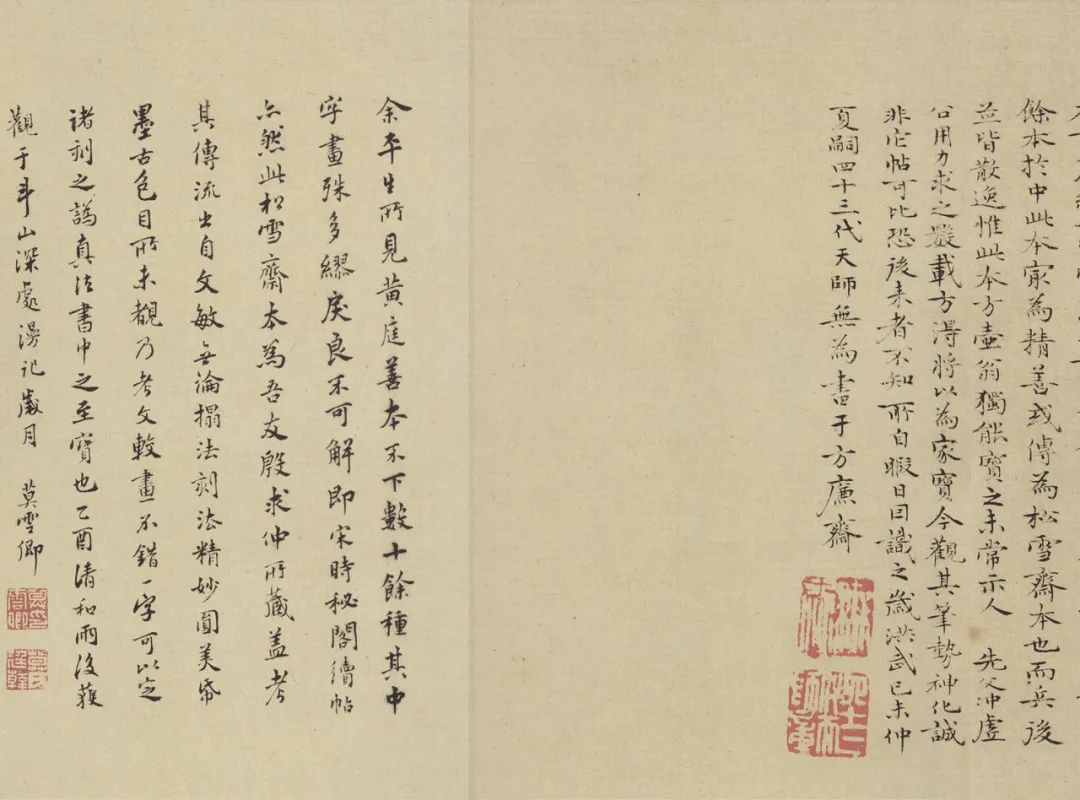 餘本於中此本寂為精善或傳為松雪齋本也而兵後
並皆散逸惟此本方壺翁獨能寶之未常示人 先父冲虛
公用力求之數載方淂將以為家寶今觀其筆勢神化誠
非它帖可比恐後來者不知所自暇日因識之歲洪武己未仲
夏嗣四十三代天師無為書于方廉齋
余平生所見黄庭善本不下數十餘種其中
字畫殊多繆戾良不可解即宋時秘閣續帖
亦然此松雪齋本為吾友殷求仲所藏蓋考
其傳流出自文敏無論搨法刻法精妙圓美帋
墨古色目所未覩乃考文較畫不錯一字可以定
諸刻之譌真法書中之至寶也乙酉清和雨後獲
觀于斗山深處漫記歲月 莫雲卿